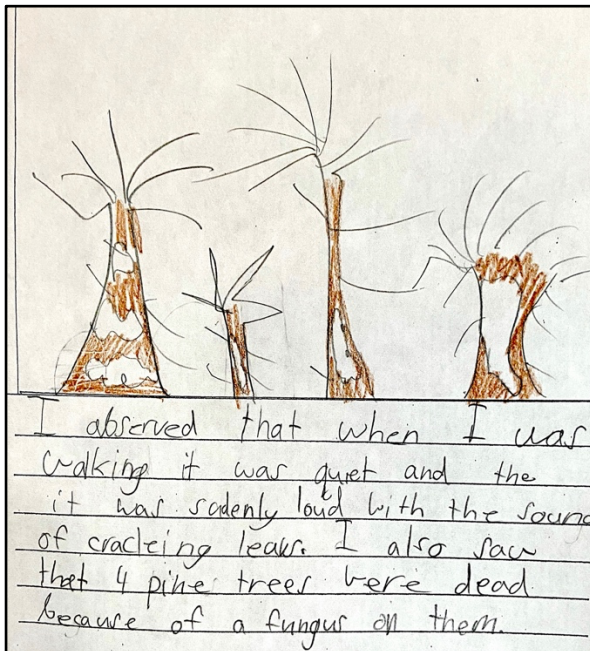 I observed that when I was
walking it was quiet and the
it was sadenly loud with the sound
of cracleing leaks. I also saw
that 4 pine trees were dead
because of a fungus on them.